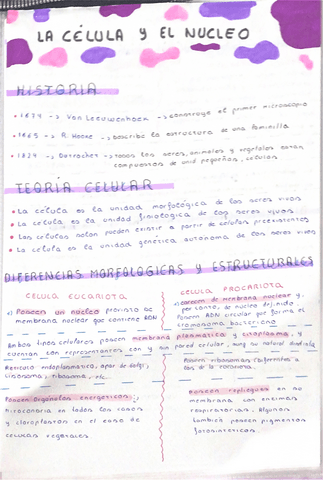 LA CÉLULA Y EL NUCLEO
HISTORIA
• 1674 -> Van Leeuwenhoek -> construye el primer microscopio
• 1665 -> R. Hooke -> describe la estructura de una
• 1824 -> Dutrochet -> todos los seres, animales y vegetales estan
compuestos de unid pequeñas, células
TEORÍA CELULAR
• La célula es la unidad morfológica de los seres vivos
• La célula es la unidad fisiologica de los seres vivos
• Las células solon pueden existir a partir de células preexistentes
• La célula es la unidad genética autonoma de los seres vivos
DIFERENCIAS MORFOLOGICAS Y ESTRUCTURALES
CELULA EUCARIOTA
Poseen un nucleo provisto de
membrana nuclear que contiene ADN
CELULA PROCARIOTA
carecen de membrana nuclear y,
por tante, de nucleo definido.
Poseen ADN circular que forma el
cromosoma bacteriano
Ambos tipos celulares poseen membrana plasmatica y citoplasma, y
cuentan con representantes con y sin pared celular, aunq su natural
Reticulo endoplasmatico, apar de golgi,
lisosoma, ribosoma, etc.
Poseen ribosomas diferentes a
los de la
Poseen Organulos energeticos:
mitocondria en todos los casos
y cloroplastos en el caso de
celulas vegetales.
Poseen repliegues en no
membrana con enzimas
respiratorias. Algunas
tambien poseen pigmentos
fotosinteticos.